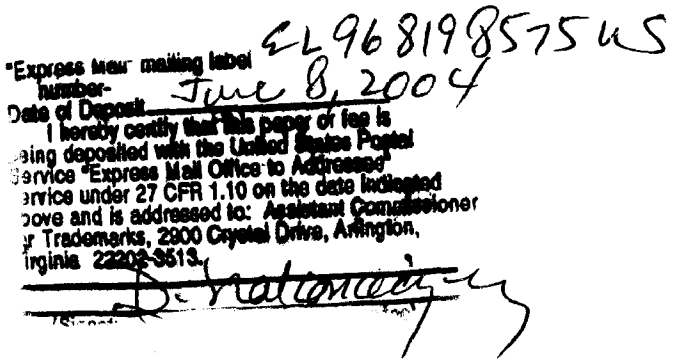 EL968198575US
"Express Mail" mailing label
number-
Date of Deposit June 8, 2004
I hereby certify that this paper or fee is
eing deposited with the United States Postal
Service "Express Mail Office to Addressee"
ervice under 27 CFR 1.10 on the date indicated
bove and is addressed to: Assistant Commissioner
or Trademarks, 2900 Crystal Drive, Arlington,
irginia 22202-3513.
D.